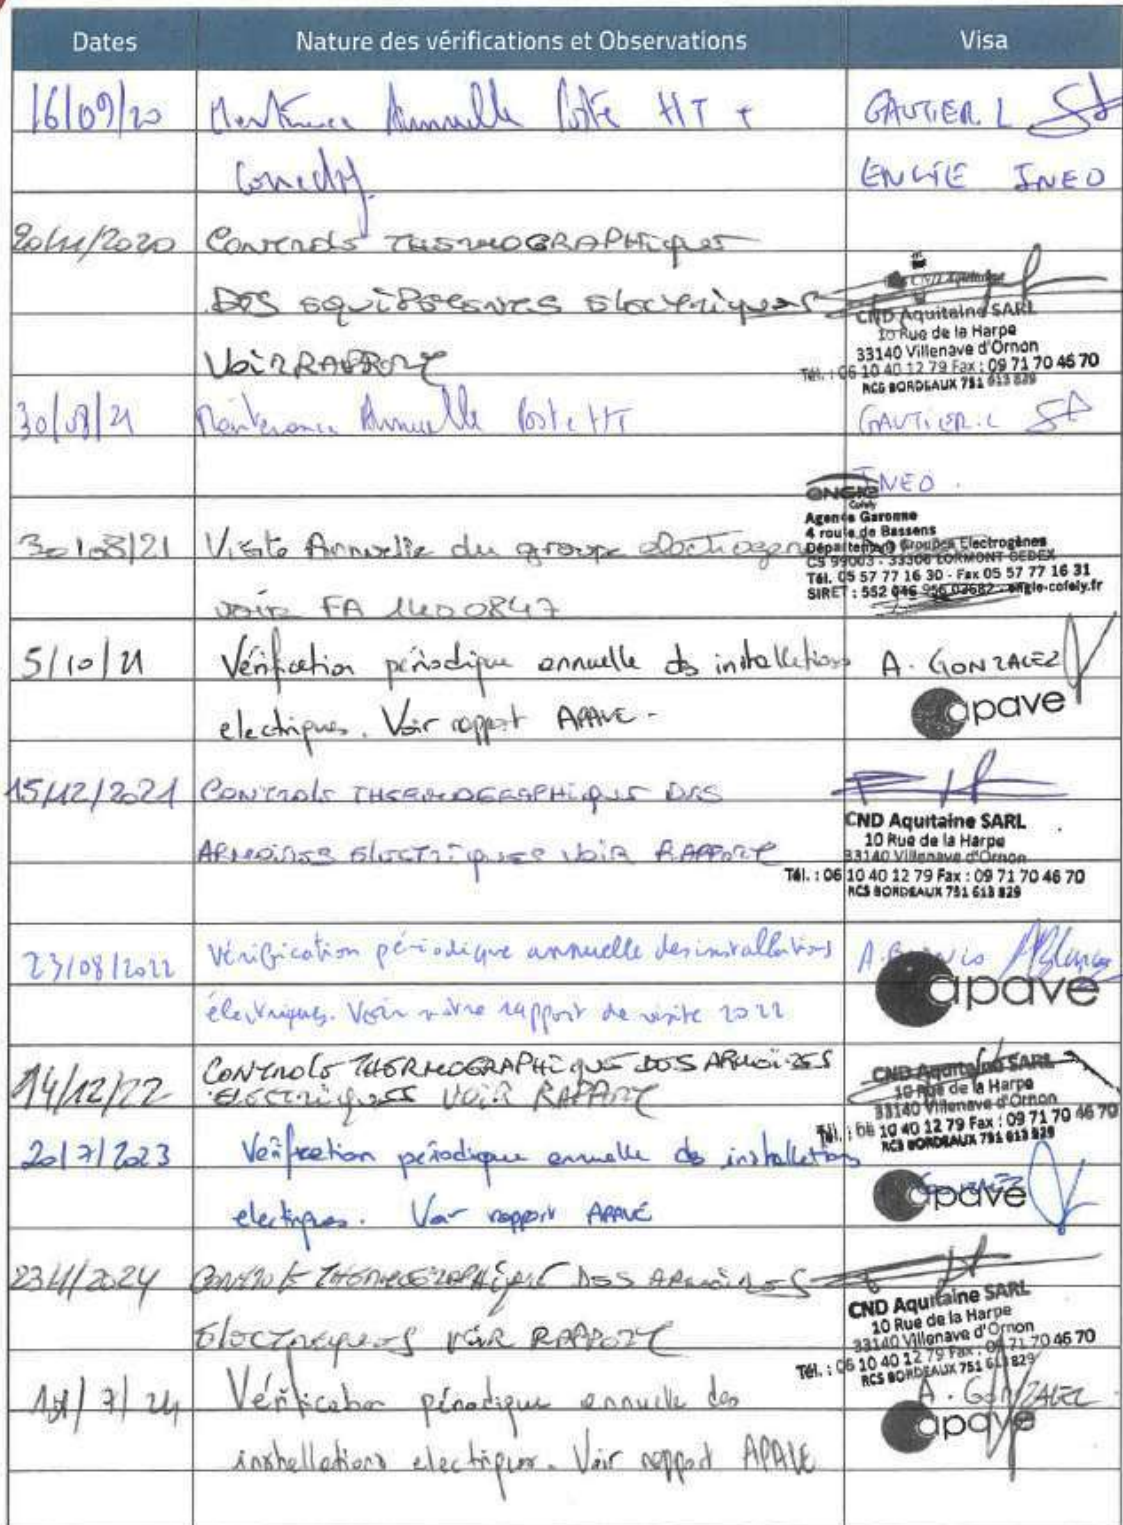 Dates Nature des vérifications et Observations Visa
16/09/20 Maintenance Annuelle Poste HT + GAUTIER. L
Correctif. ENGIE INEO
20/11/2020 CONTROLE THERMOGRAPHIQUES
DES EQUIPEMENTS ELECTRIQUES
CND Aquitaine SARL
10 Rue de la Harpe
33140 Villenave d'Ornon
VOIR RAPPORT
Tél. : 06 10 40 12 79 Fax : 09 71 70 46 70
RCS BORDEAUX 751 613 829
30/08/21 Maintenance Annuelle Poste HT GAUTIER. L
INEO.
ENGIE
Cofely
Agence Garonne
4 route de Bassens
30/08/21 Visite Annuelle du groupe electrogene
Département Groupes Electrogènes
CS 99003 - 33306 LORMONT CEDEX
Tél. 05 57 77 16 30 - Fax 05 57 77 16 31
SIRET : 552 046 955 03682 - engie-cofely.fr
voir FA 1400847
5/10/21 Vérification périodique annuelle des installations A. GONZALEZ
electriques. Voir rapport APAVE. apave
15/12/2021 CONTROLE THERMOGRAPHIQUE DES
CND Aquitaine SARL
10 Rue de la Harpe
ARMOIRES ELECTRIQUES VOIR RAPPORT
33140 Villenave d'Ornon
Tél. : 06 10 40 12 79 Fax : 09 71 70 46 70
RCS BORDEAUX 751 613 829
23/08/2022 Vérification périodique annuelle des installations
apave
électriques. Voir notre rapport de visite 2022
14/12/22 CONTROLE THERMOGRAPHIQUE DES ARMOIRES
ELECTRIQUES VOIR RAPPORT
CND Aquitaine SARL
10 Rue de la Harpe
33140 Villenave d'Ornon
Tél. : 06 10 40 12 79 Fax : 09 71 70 46 70
RCS BORDEAUX 751 613 829
20/7/2023 Vérification périodique annuelle des installations
electriques. Voir rapport APAVE apave
CONTROLE THERMOGRAPHIQUE DES ARMOIRES
ELECTRIQUES VOIR RAPPORT
CND Aquitaine SARL
10 Rue de la Harpe
33140 Villenave d'Ornon
Tél. : 06 10 40 12 79 Fax : 09 71 70 46 70
RCS BORDEAUX 751 613 829
Vérification périodique annuelle des A. GONZALEZ
installations electriques. Voir rapport APAVE apave